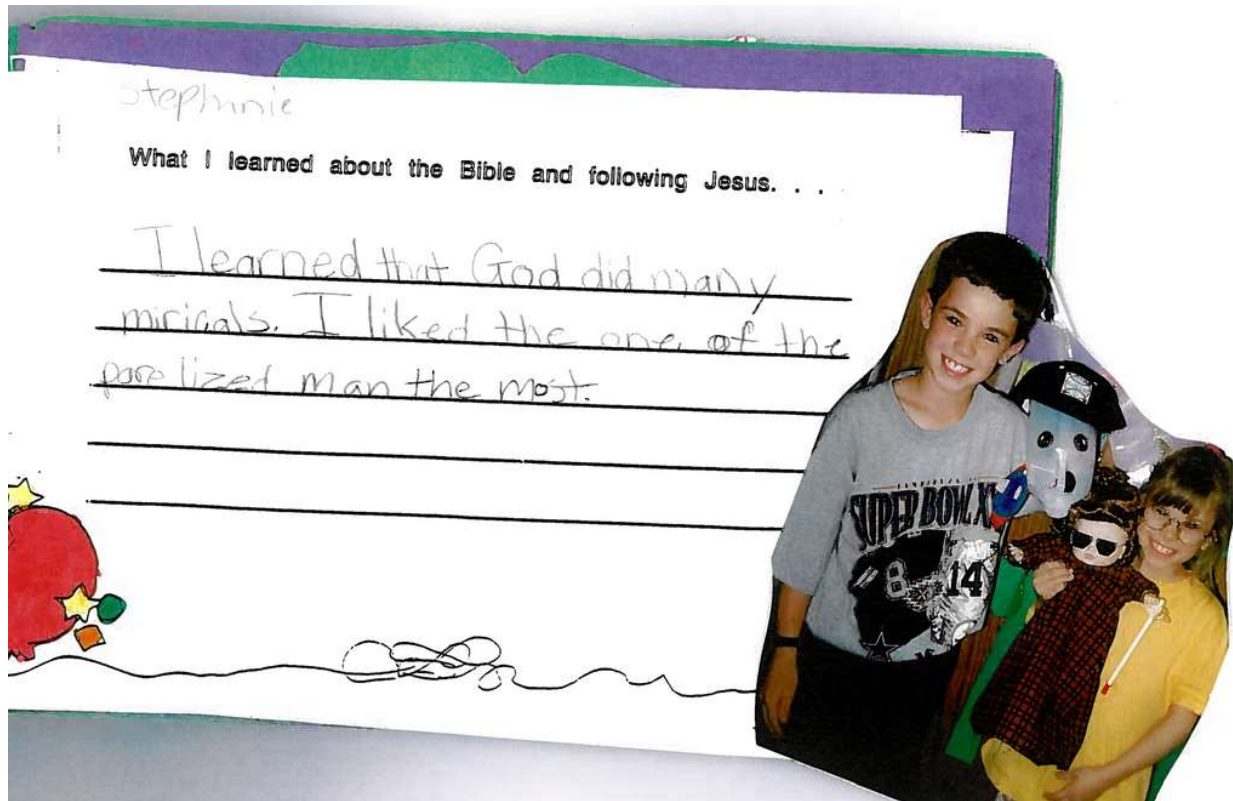 Stephanie
What I learned about the Bible and following Jesus. . .
I learned that God did many
miricals. I liked the one of the
paralized man the most.
SUPER BOWL X
8 14